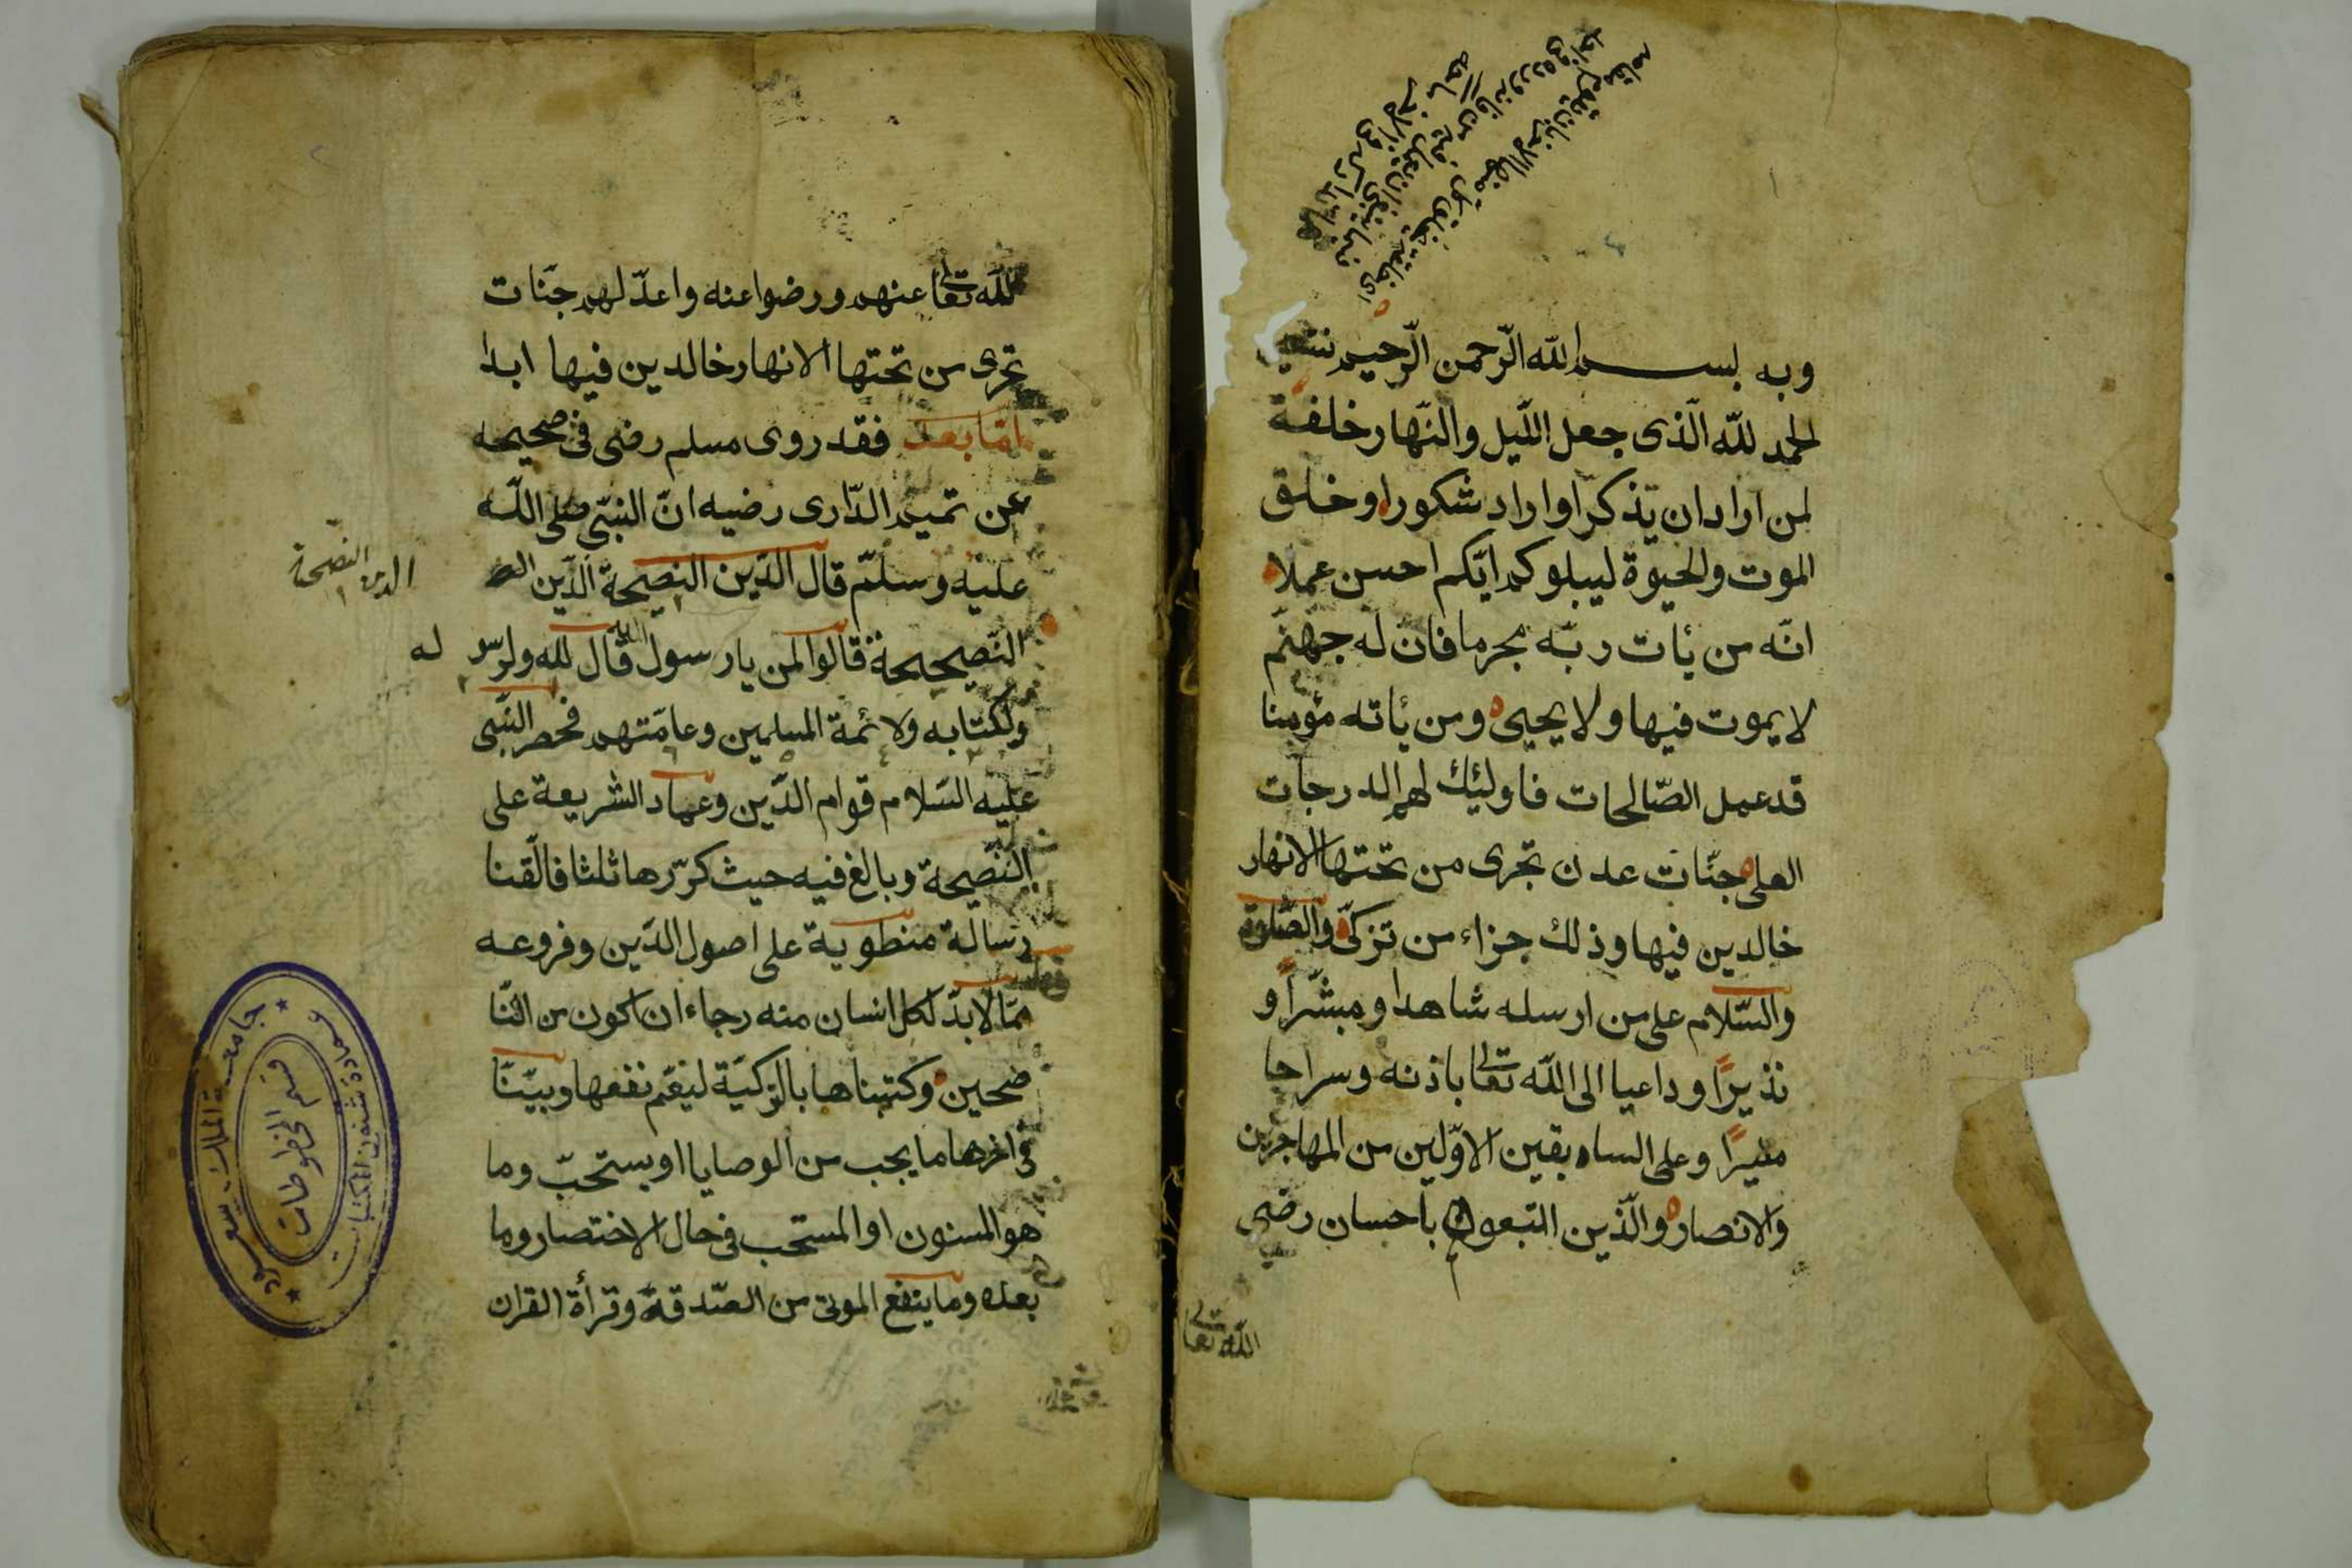 وبه بسم الله الرّحمن الرّحيم نستعين
الحمد للّه الّذى جعل اللّيل والنّهار خلفة
لمن اراد ان يذكر او اراد شكورا وخلق
الموت والحيوة ليبلوكم ايّكم احسن عملا
انّه من يأت ربّه مجرما فان له جهنّم
لا يموت فيها ولا يحيى ومن يأته مؤمنا
قد عمل الصّالحات فاولئك لهم الدرجات
العلى جنّات عدن تجرى من تحتها الانهار
خالدين فيها وذلك جزاء من تزكّى والصّلوة
والسّلام على من ارسله شاهدا ومبشّرا و
نذيرًا وداعيا الى اللّه تعالى باذنه وسراجا
منيرًا وعلى السابقين الاوّلين من المهاجرين
والانصار والّذين اتّبعوهم باحسان رضى
اللّه تعالى
للّه تعالى عنهم ورضوا عنه واعدّ لهم جنّات
تجرى من تحتها الانهار خالدين فيها ابدا
امّا بعد فقد روى مسلم رضى فى صحيحه
عن تميم الدّارى رضيه انّ النبّى صلى اللّه
عليه وسلّم قال الدّين النصيحة الدّين
النّصيحة قالوا لمن يا رسول اللّه قال للّه ولرسو له
ولكتابه ولائمة المسلمين وعامّتهم فحصر النبّى
عليه السّلام قوام الدّين وعماد الشريعة على
النّصيحة وبالغ فيه حيث كرّرها ثلثا فالّفنا
رسالة منطوية على اصول الدّين وفروعه
ممّا لابدّ لكل انسان منه رجاء ان اكون من النّا
صحين وكتبناها بالتركيّة ليعّم نفعها وبيّنّا
فى اخرها ما يجب من الوصايا او يستحبّ وما
هو المسنون او المستحب فى حال الاختصار وما
بعده وما ينفع الموتى من الصّدقة وقرأة القران
الدين النصيحة
جامعة الملك سعود
عمادة شئون المكتبات
قسم المخطوطات